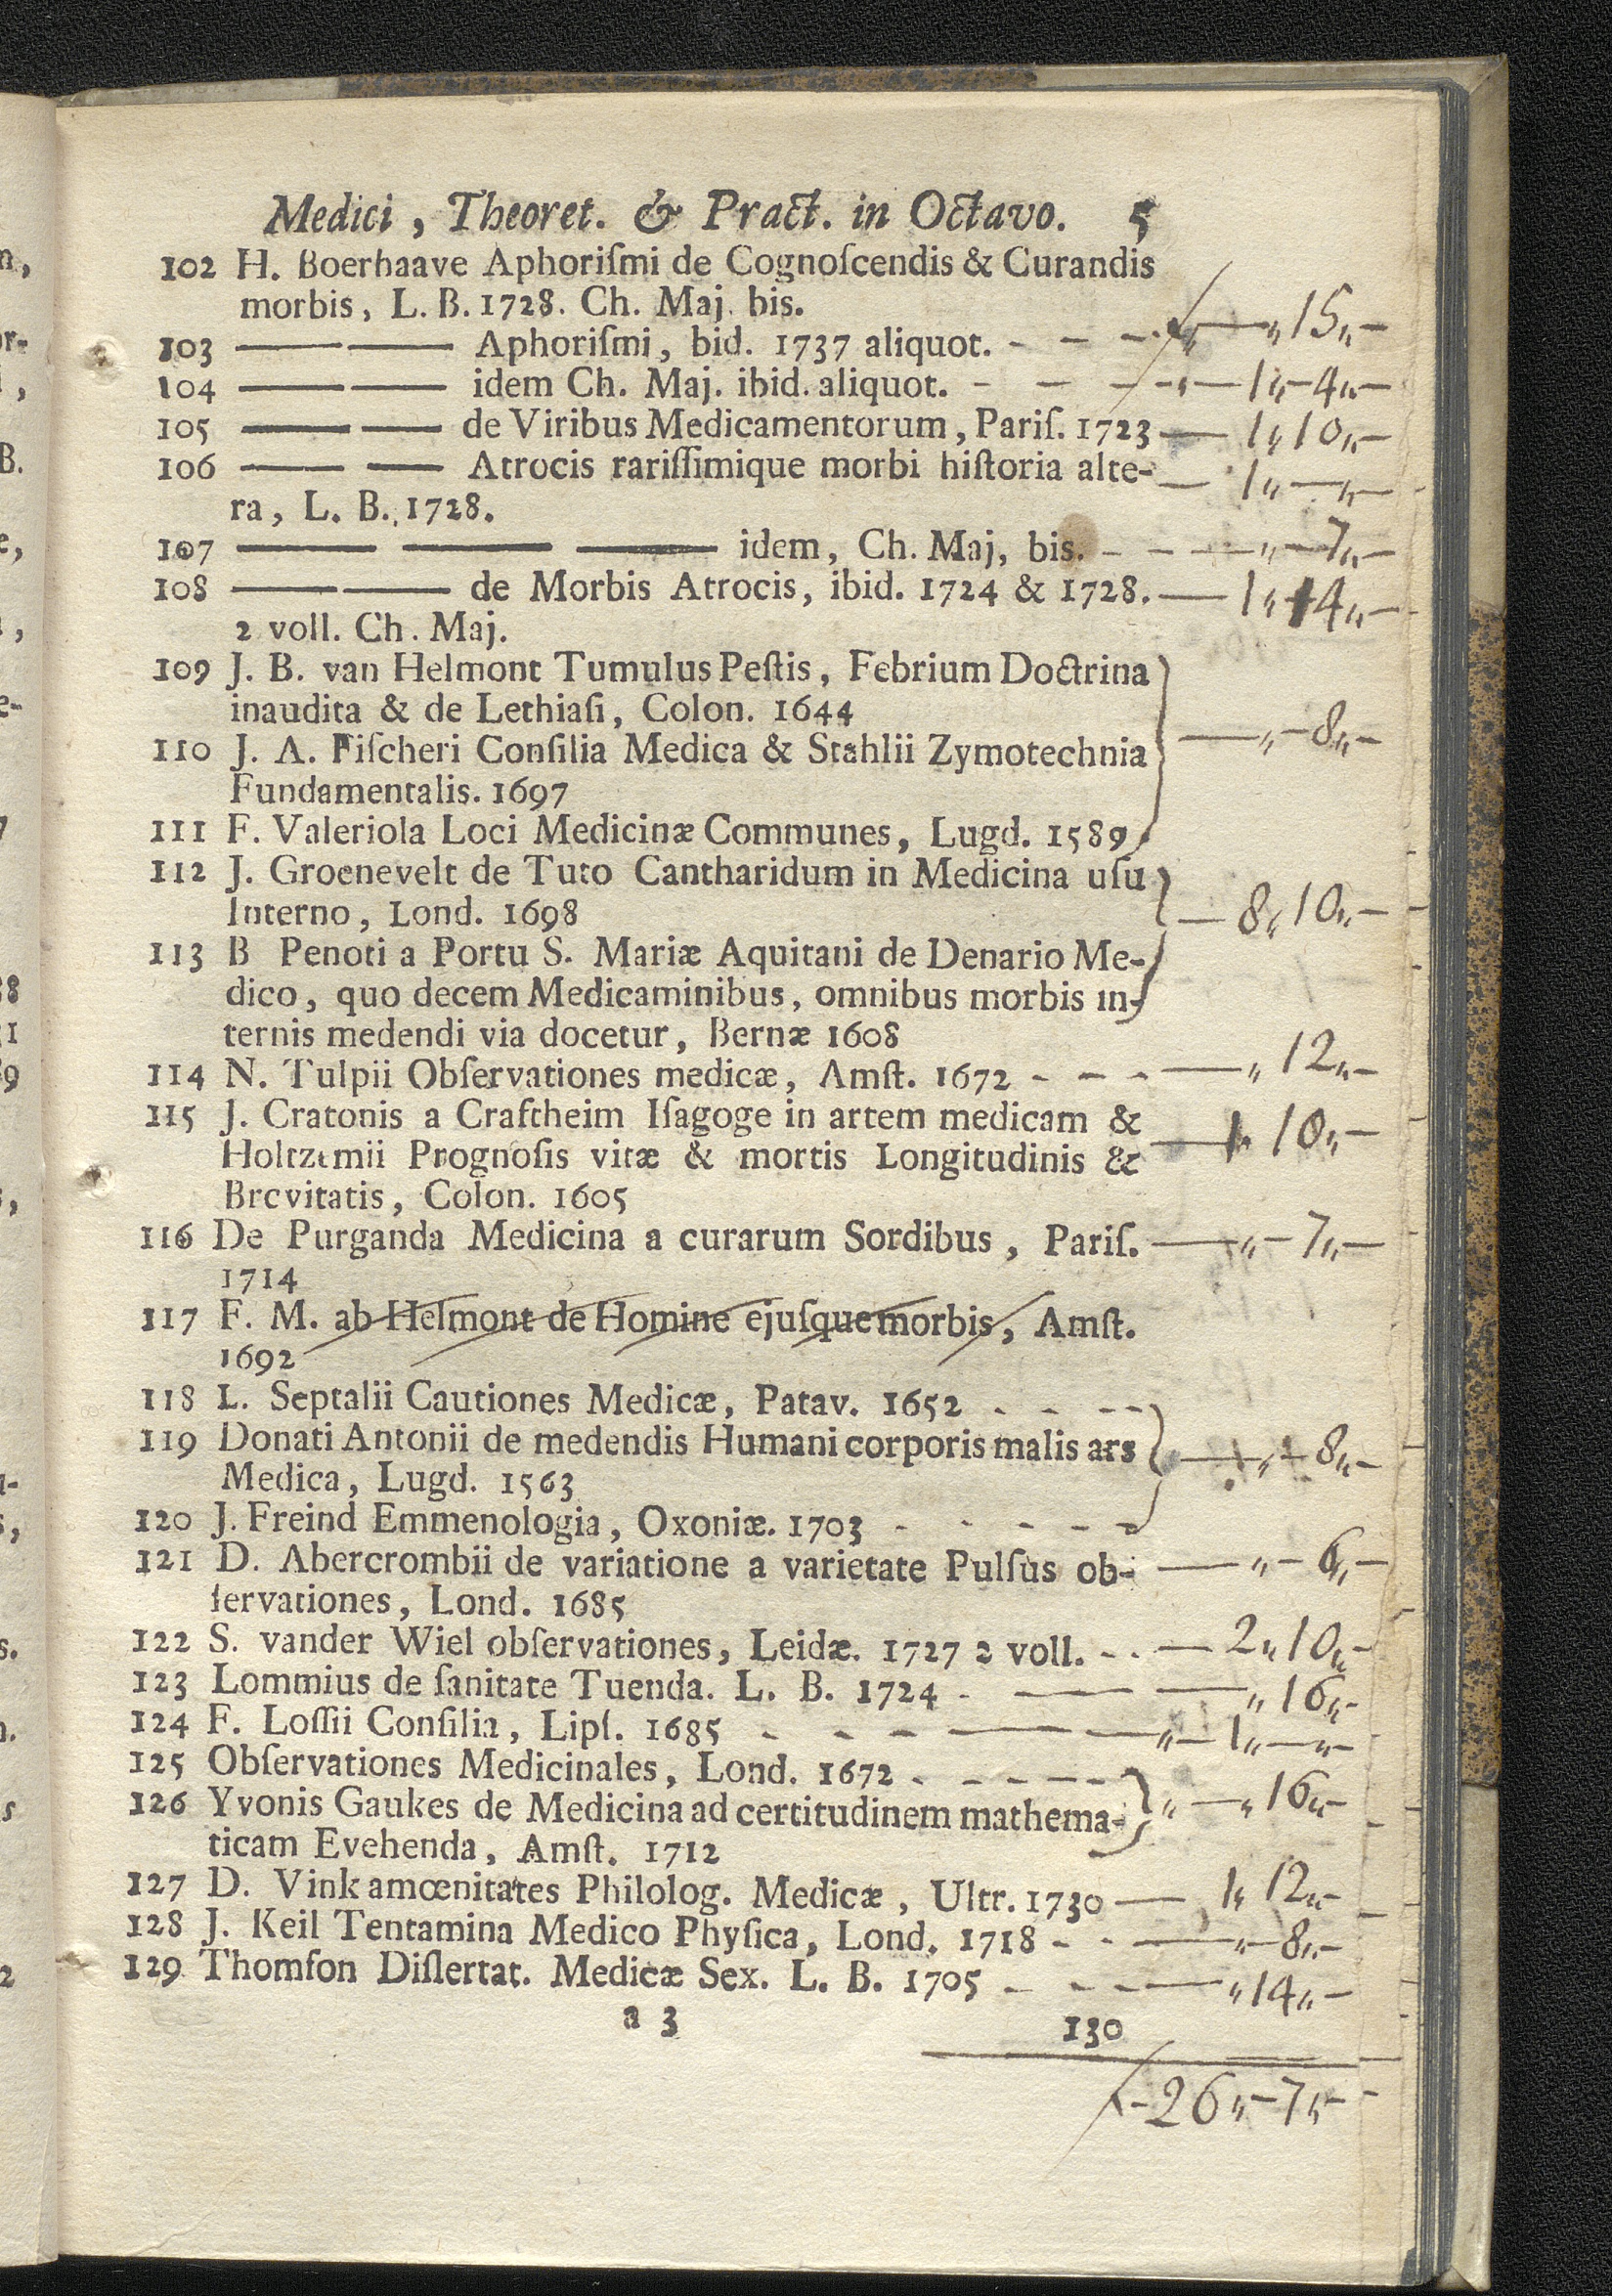 Medici, Theoret. & Pract. in Octavo. 5
102 H. Boerhaave Aphoriſmi de Cognoſcendis & Curandis
morbis, L. B. 1728. Ch. Maj. bis.
103 —— —— Aphoriſmi, bid. 1737 aliquot. - - - „ — „ 15 „ —
104 —— —— idem Ch. Maj. ibid. aliquot. - - - — 1 „ — 4 „ —
105 —— —— de Viribus Medicamentorum, Pariſ. 1723 — 1 „ 10 „ —
106 —— —— Atrocis rariſſimique morbi hiſtoria alte- — 1 „ — „ —
ra, L. B. 1728.
107 —— —— —— idem, Ch. Maj, bis. - - — „ — 7 „ —
108 —— —— de Morbis Atrocis, ibid. 1724 & 1728. — 1 „ 14 „ —
2 voll. Ch. Maj.
109 J. B. van Helmont Tumulus Peſtis, Febrium Doctrina
inaudita & de Lethiaſi, Colon. 1644
110 J. A. Fiſcheri Conſilia Medica & Stahlii Zymotechnia — „ — 8 „ —
Fundamentalis. 1697
111 F. Valeriola Loci Medicinæ Communes, Lugd. 1589
112 J. Groenevelt de Tuto Cantharidum in Medicina uſu
Interno, Lond. 1698 — 8 „ 10 „ —
113 B Penoti a Portu S. Mariæ Aquitani de Denario Me-
dico, quo decem Medicaminibus, omnibus morbis in-
ternis medendi via docetur, Bernæ 1608
114 N. Tulpii Obſervationes medicæ, Amſt. 1672 - - - — „ 12 „ —
115 J. Cratonis a Craftheim Iſagoge in artem medicam & — 10 „ —
Holtzemii Prognoſis vitæ & mortis Longitudinis &
Brevitatis, Colon. 1605
116 De Purganda Medicina a curarum Sordibus, Pariſ. — „ — 7 „ —
1714
117 F. M. ab Helmont de Homine ejuſque morbis, Amſt.
1692
118 L. Septalii Cautiones Medicæ, Patav. 1652 - - - -
119 Donati Antonii de medendis Humani corporis malis ars — „ — 8 „ —
Medica, Lugd. 1563
120 J. Freind Emmenologia, Oxoniæ. 1703 - - - - -
121 D. Abercrombii de variatione a varietate Pulſus ob- — „ — 6 „ —
ſervationes, Lond. 1685
122 S. vander Wiel obſervationes, Leidæ. 1727 2 voll. - - — 2 „ 10 „ —
123 Lommius de ſanitate Tuenda. L. B. 1724 - — — „ 16 „ —
124 F. Loſſii Conſilia, Lipſ. 1685 - - - — — „ — 1 „ — „ —
125 Obſervationes Medicinales, Lond. 1672 - - - - -
126 Yvonis Gaukes de Medicina ad certitudinem mathema- „ — „ 16 „ —
ticam Evehenda, Amſt. 1712
127 D. Vink amœnitates Philolog. Medicæ, Ultr. 1730 — 1 „ 12 „ —
128 J. Keil Tentamina Medico Phyſica, Lond. 1718 - - — „ — 8 „ —
129 Thomſon Diſſertat. Medicæ Sex. L. B. 1705 - - - — „ 14 „ —
a 3 130
ƒ - 26 „ — 7 „ —